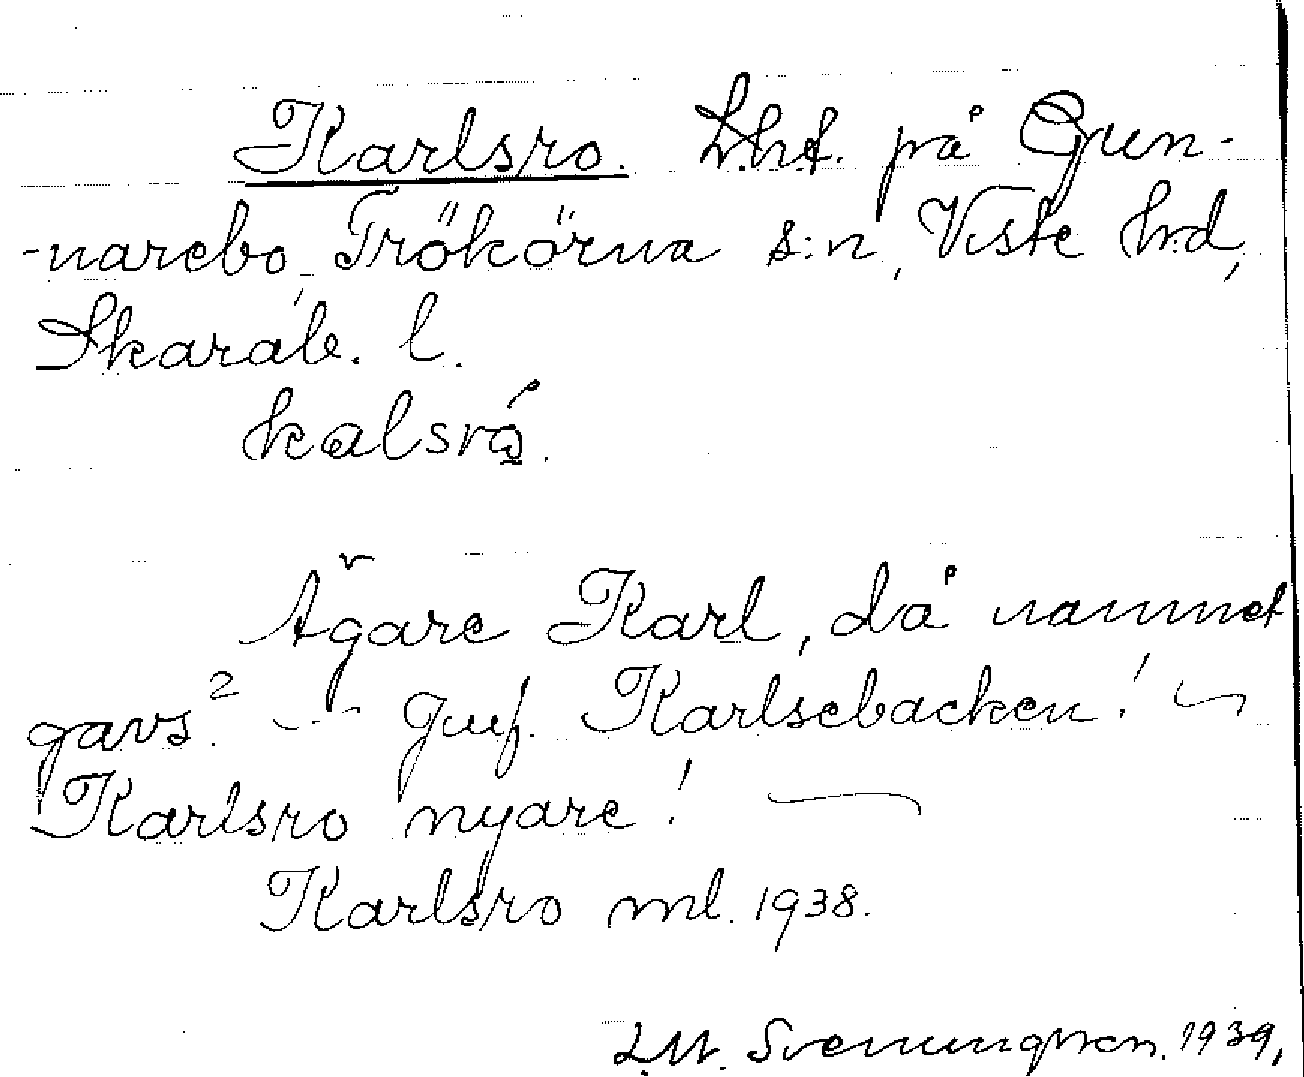 Karlsro. Lht. på Gun-
-narebo, Trökörna s:n, Viste hrd,
Skarab. l.
kalsró.
Ägare Karl, då namnet
gavs? — Jmf. Karlsebacken! —
Karlsro nyare! —
Karlsro ml. 1938.
Svenungsson. 1939,